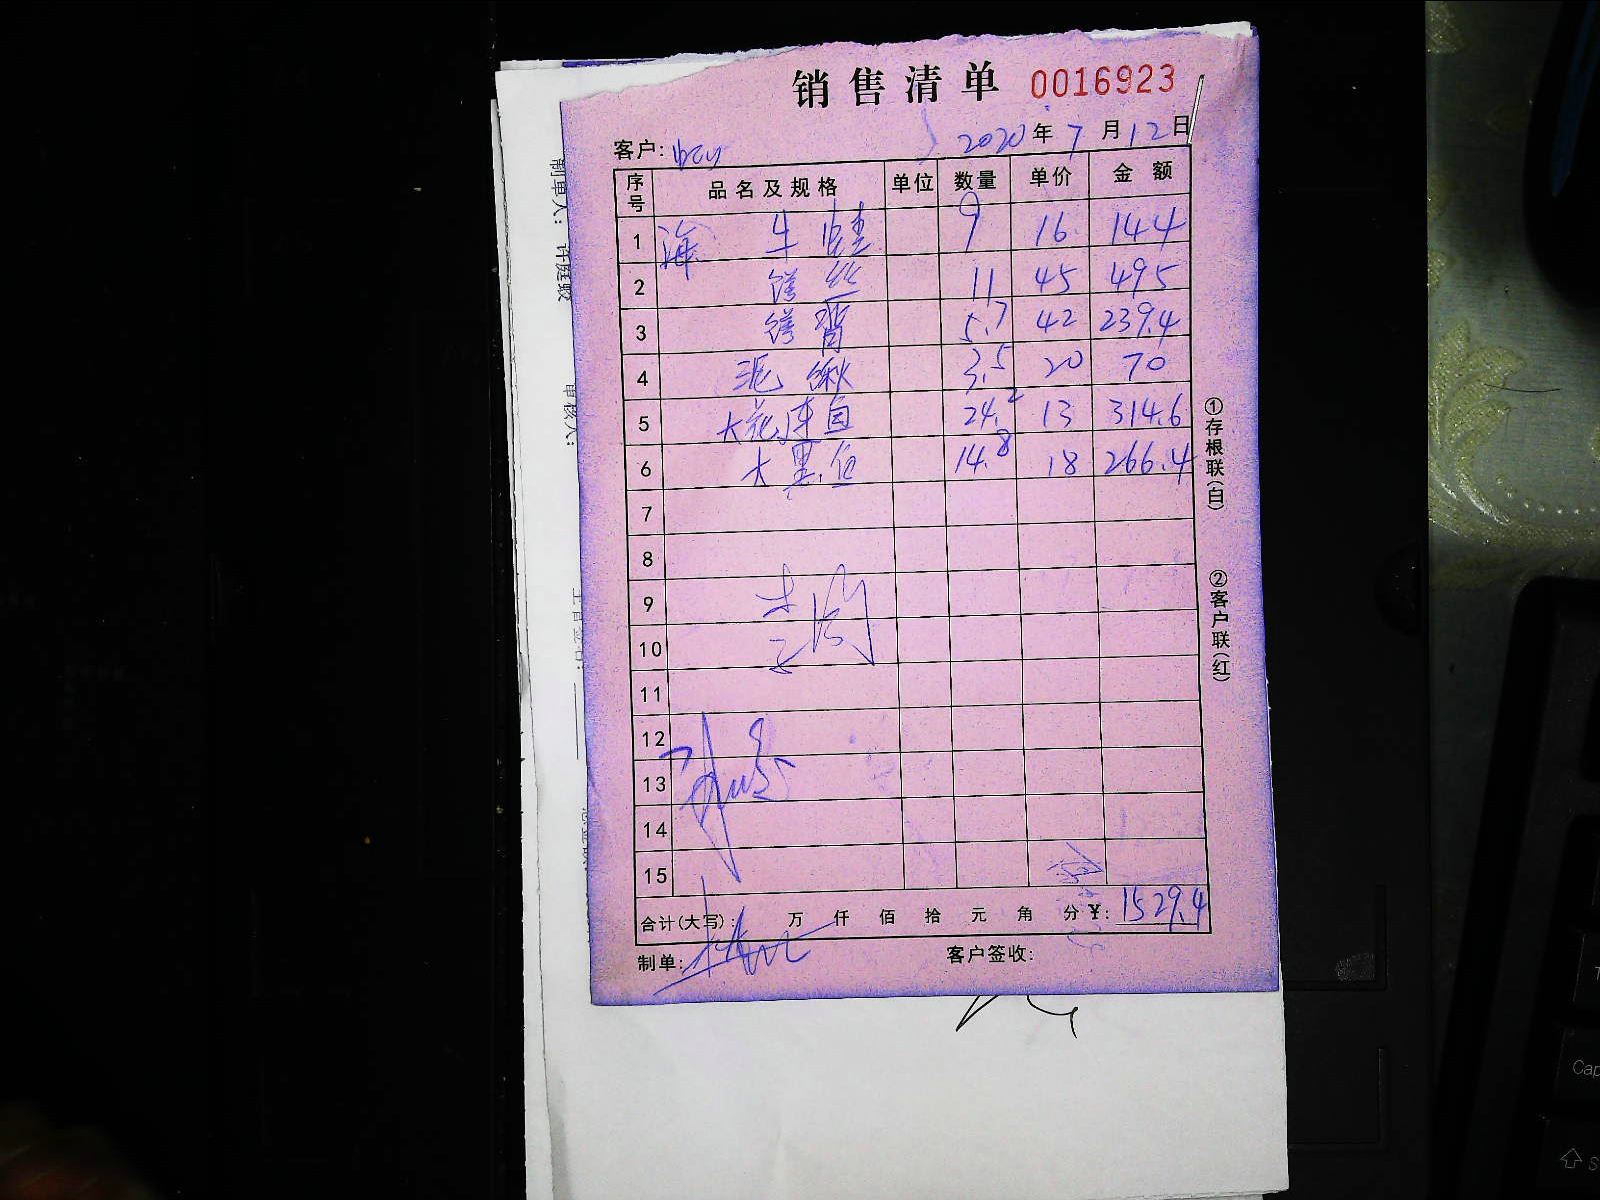 销售清单 0016923
客户: 2020年7月12日
序号 品名及规格 单位 数量 单价 金额
1 海 牛蛙 9 16 144
2 鳝丝 11 45 495
3 鳝背 5.7 42 239.4
4 泥鳅 3.5 20 70
5 大花连鱼 24.2 13 314.6
6 大黑鱼 14.8 18 266.4
7
8
9
10
11
12
13
14
15
合计(大写): 万 仟 佰 拾 元 角 分 ¥: 1529.4
制单: 客户签收:
①存根联(白)
②客户联(红)
制单人:
审核人: